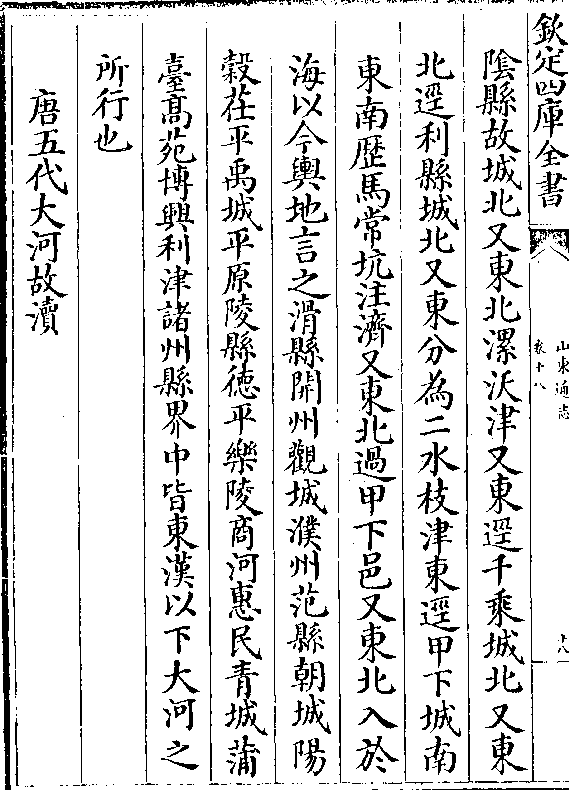 欽定四庫全書
山東通志
卷十八
十八
隂縣故城北又東北漯沃津又東逕千乘城北又東
北逕利縣城北又東分為二水枝津東逕甲下城南
東南歴馬常坑注濟又東北過甲下邑又東北入於
海以今輿地言之滑縣開州觀城濮州范縣朝城陽
穀茌平禹城平原陵縣徳平樂陵商河惠民青城蒲
臺高苑博興利津諸州縣界中皆東漢以下大河之
所行也
唐五代大河故瀆